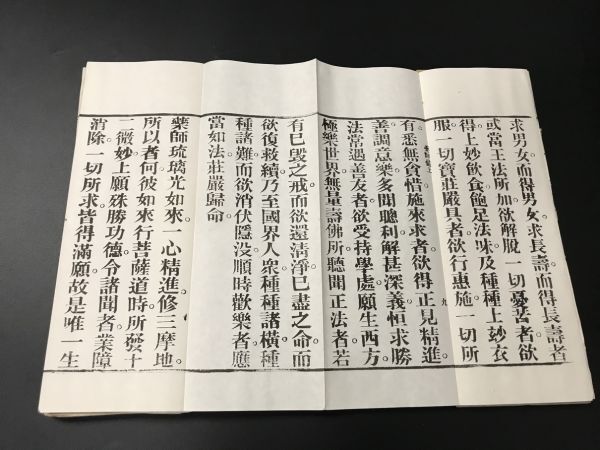 求男女而得男女。求長壽而得長壽者
或當王法所加欲解脫一切憂苦者欲
得上妙飲食飽足法味及種種上玅衣
服一切寶莊嚴具者欲行惠施一切所
有悉無貪惜施來求者欲得正見精進
善調意樂多聞聰利解甚深義恒求勝
法常遇善友者欲受持學處願生西方
極樂世界無量壽佛所聽聞正法者若
有已毀之戒而欲還淸淨已盡之命而
欲復救續乃至國界人衆種種諸橫種
種諸難而欲消伏隱没順時歡樂者應
當如法莊嚴歸命
藥師琉璃光如來。一心精進修三摩地。
所以者何彼如來行菩薩道時所發十
二微妙上願殊勝功德令諸聞者業障
消除一切所求皆得滿願故是唯一生